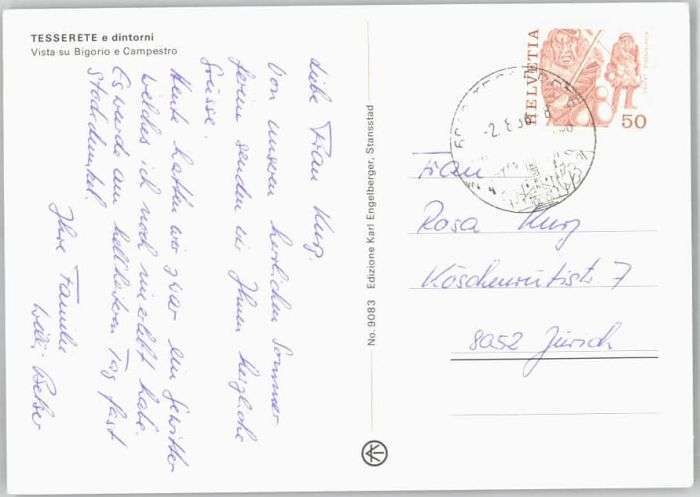 TESSERETE e dintorni
Vista su Bigorio e Campestro
Liebe Frau Kurz.
Von unseren herrlichen Sommer
ferien senden wir Ihnen herzliche
Grüsse.
Heute hatten wir zwar ein Gewitter
welches ich noch nie erlebt habe.
Es wurde am hellheiteren Tag fast
stockdunkel.
Ihre Familie
Willi
No. 9083 Edizione Karl Engelberger, Stansstad
HELVETIA
50
Frau
Rosa Kurz
Köschenrütistr. 7
8052 Zürich